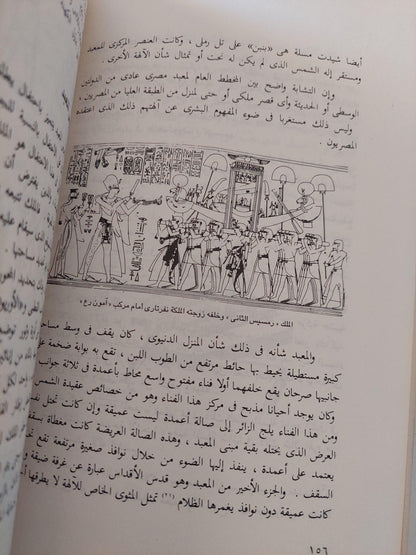 أيضا شيدت مسلة هى «بنبن» على تل رملى ، وكانت العنصر المركزى للمعبد
ومستقر إله الشمس الذى لم يكن له نحت أو تمثال شأن الآلهة الأخرى .
وإن التشابة واضح بين المخطط العام لمعبد مصرى عادى من الدولتين
الوسطى أو الحديثة وأى قصر ملكى أو حتى لمنزل من الطبقة العليا من المصريين ،
وليس ذلك مستغربا فى ضوء المفهوم البشرى عن آلهتهم ذلك الذى اعتقده
المصريون .
الملك، رمسيس الثانى، وخلفه زوجته الملكة نفرتارى أمام مركب، آمون رع،
والمعبد شأنه فى ذلك شأن المنزل الدنيوى، كان يقف فى وسط مساحة
كبيرة مستطيلة يحيط بها حائط مرتفع من الطوب اللبن ، تقع به بوابة ضخمة على
جانبيها صرحان يقع خلفهما أولا فناء مفتوح واسع محاط بأعمدة فى ثلاثة جوانب
وكان يوجد أحيانا مذبح فى مركز هذا الفناء وهو من خصائص عقيدة الشمس
ومن هذا الفناء يلج الزائر إلى صالة أعمدة ليست عميقة وإن كانت تحتل نفس
العرض الذى يحتله بقية مبنى المعبد ، وهذه الصالة العريضة كانت مغطاة بسقف
يعتمد على أعمدة ، ينفذ إليها الضوء من خلال نوافذ صغيرة مرتفعة تقع
السقف . والجزء الأخير من المعبد وهو قدس الأقداس عبارة عن غرفة ضيقة
كانت عميقة دون نوافذ يغمرها الظلام تمثل المثوى الخاص للآلهة لا يطرقها
١٥٦